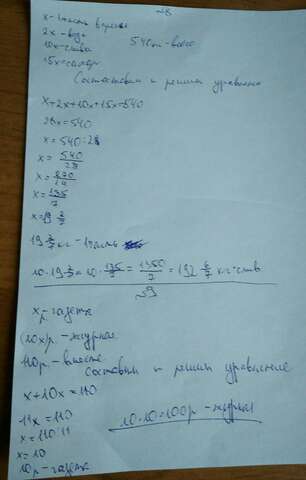 №8
x - 1 часть
2x - вода
10x - слив
15x - сахар
540 кг - всего
Составим и решим уравнение
x+2x+10x+15x=540
28x=540
x=540:28
x=540/28
x=270/14
x=135/7
x=19 2/7
19 2/7 кг - 1 часть
10·19 2/7=10·135/7=1350/7=192 6/7 кг-слив
№9
x р - газета
(10x)р. - журнал
110р - вместе
Составим и решим уравнение
x+10x=110
11x=110
x=110:11
x=10
10р - газета
10·10=100р - журнал